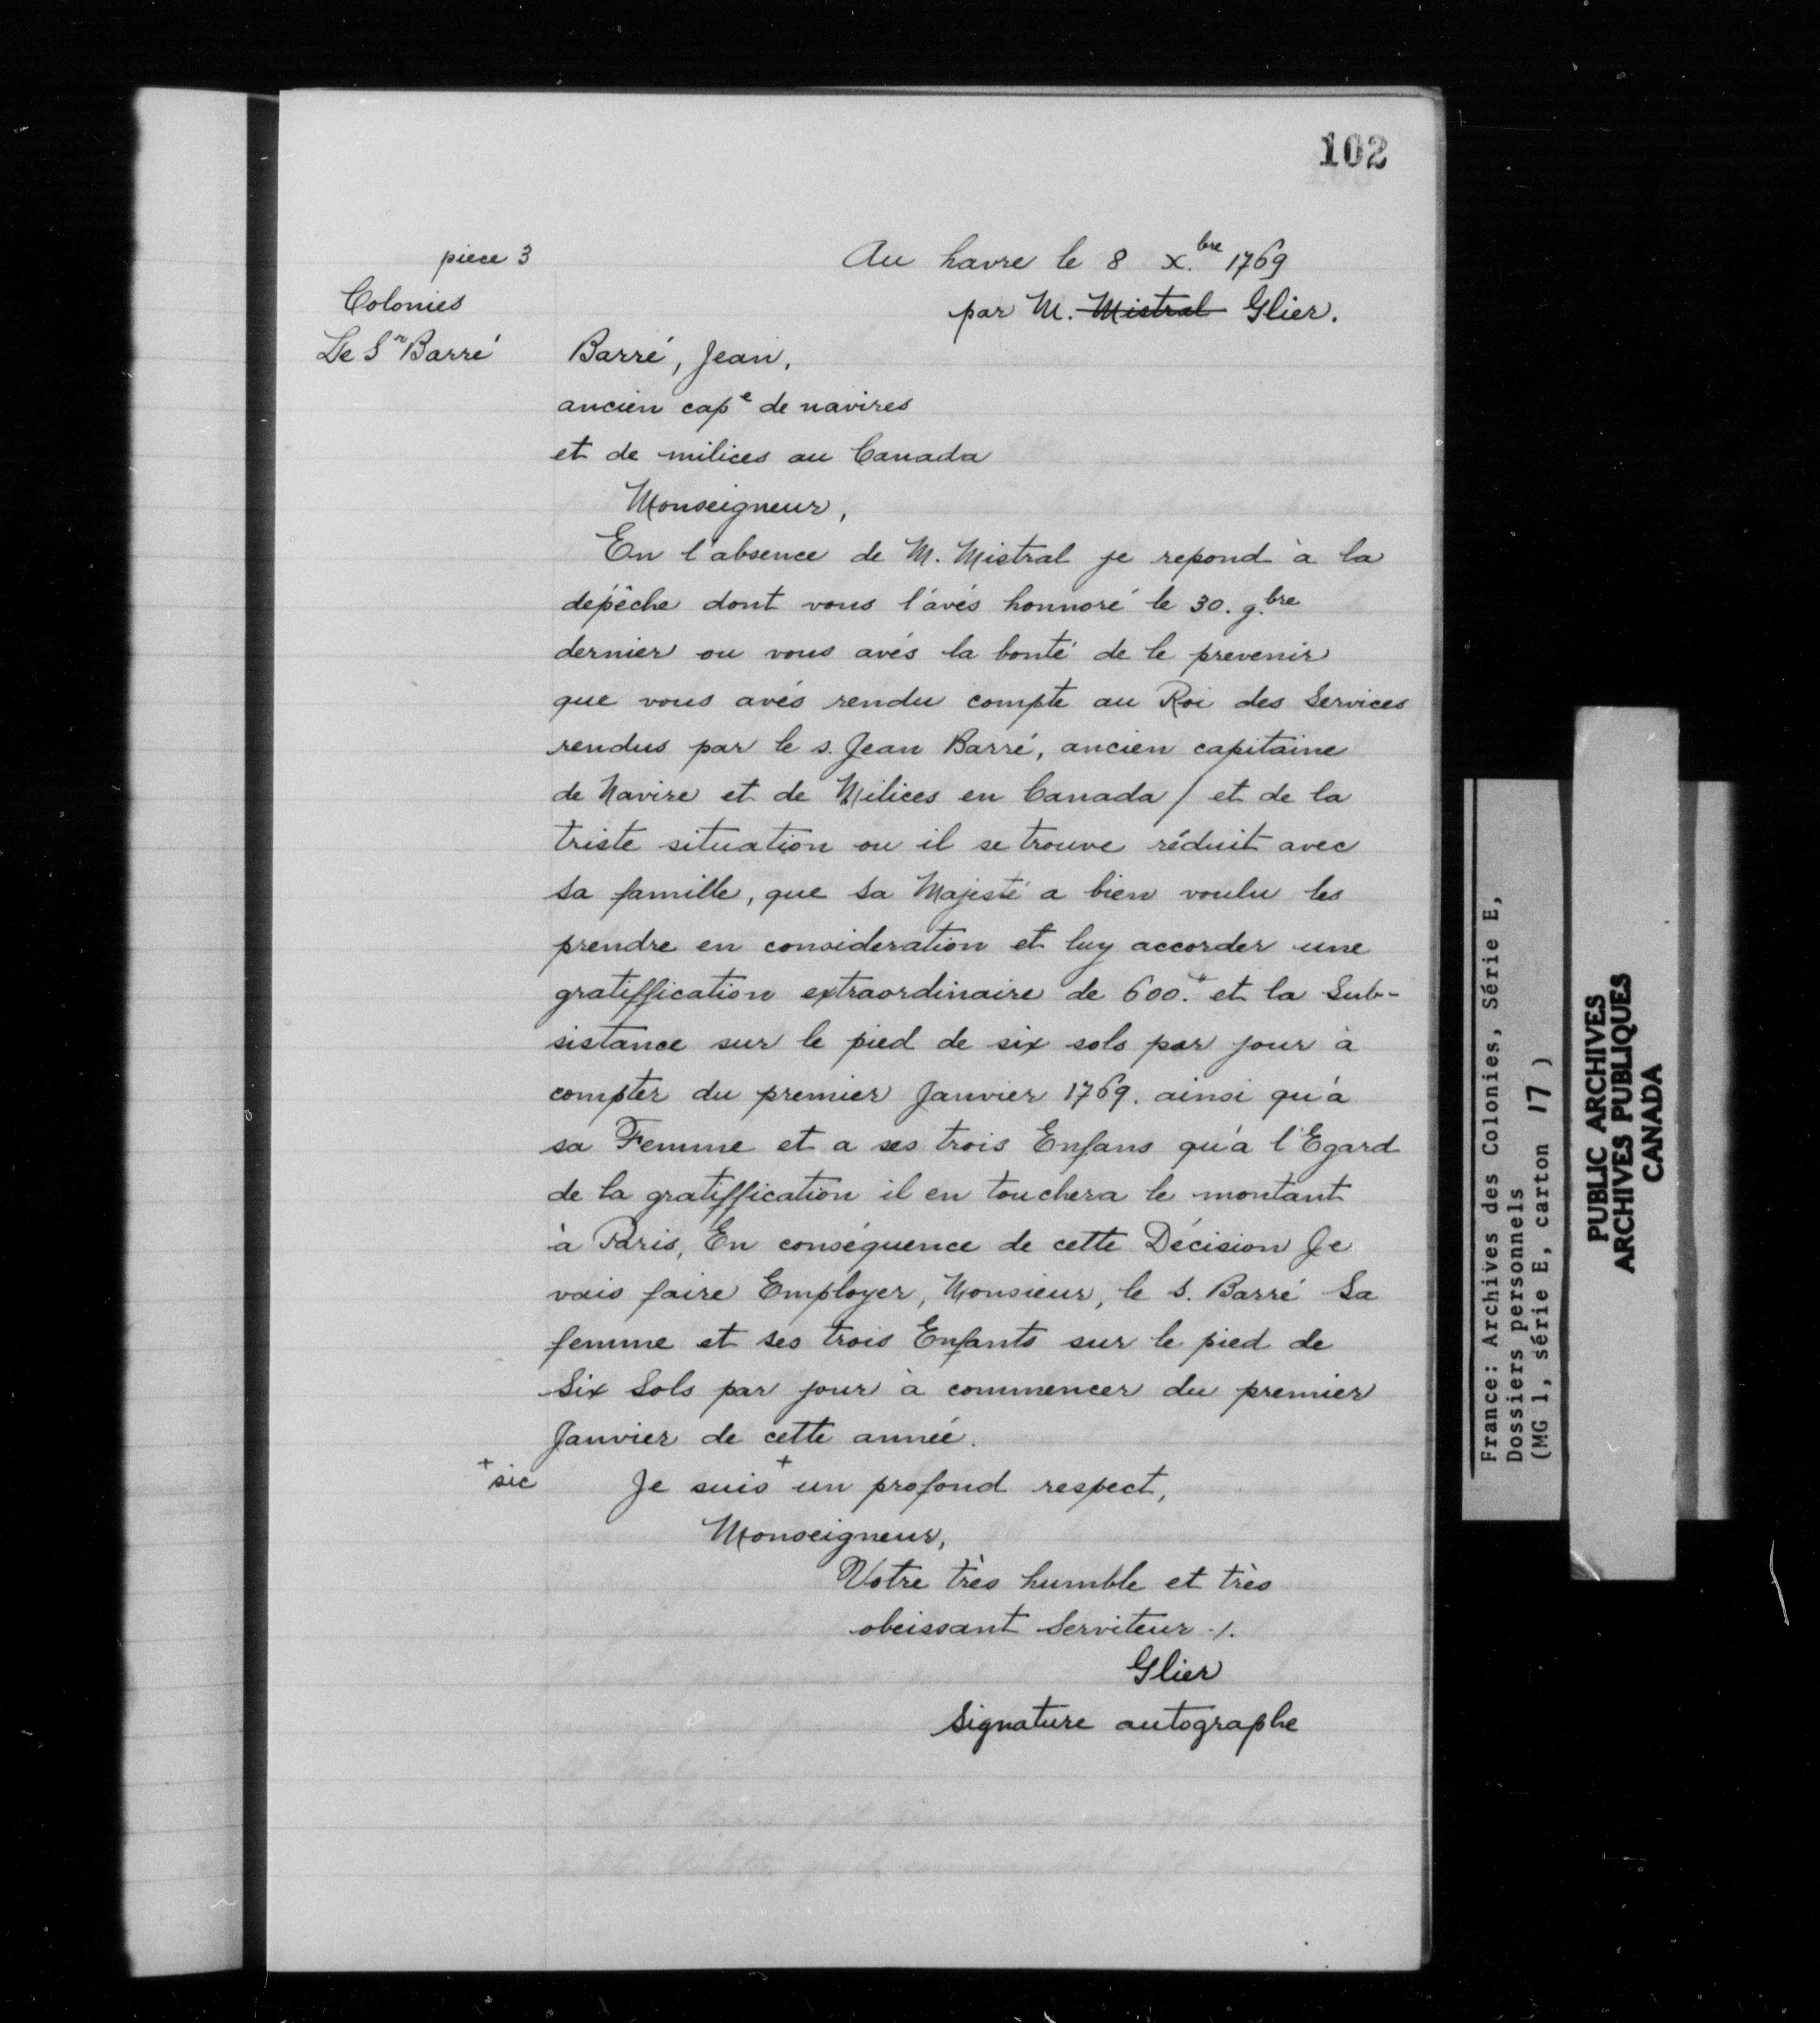 102
piece 3
Au havre le 8 X.bre 1769
Colonies
par M. Mistral Glier.
Le Sr Barré
Barré, Jean,
ancien cape de navires
et de milices au Canada
Monseigneur,
En l'absence de M. Mistral je repond à la
dépêche dont vous l'avés honnoré le 30. 9.bre
dernier ou vous avés la bonté de le prevenir
que vous avés rendu compte au Roi des Services
rendus par le s. Jean Barré, ancien capitaine
de Navire et de Milices en Canada / et de la
triste situation ou il se trouve réduit avec
Sa famille, que Sa Majesté a bien voulu les
prendre en consideration et luy accorder une
gratiffication extraordinaire de 600.# et la Sub-
sistance sur le pied de six sols par jour à
compter du premier Janvier 1769. ainsi qu'à
sa Femme et a ses trois Enfans qu'à l'Egard
de la gratiffication il en touchera le montant
à Paris, En conséquence de cette Décision Je
vais faire Employer, Monsieur, le S. Barré Sa
femme et Ses trois Enfants sur le pied de
Six Sols par jour à commencer du premier
Janvier de cette année.
+sic Je suis + un profond respect,
Monseigneur,
Votre très humble et très
obeissant Serviteur ./.
Glier
Signature autographe
France: Archives des Colonies, Série E,
Dossiers personnels
(MG 1, série E, carton 17 )
PUBLIC ARCHIVES
ARCHIVES PUBLIQUES
CANADA